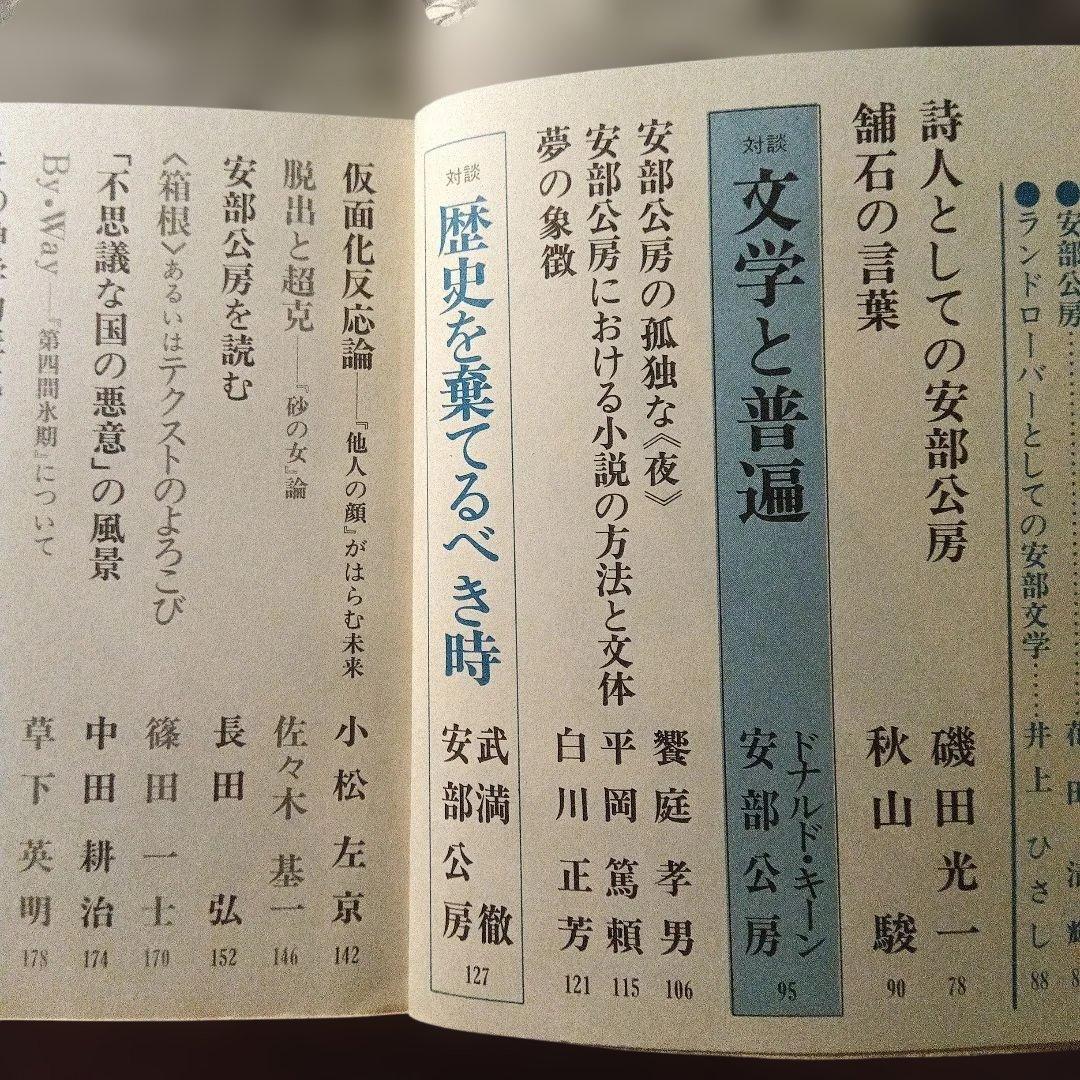 安部公房
●ランドローバーとしての安部文学……井上ひさし 88
詩人としての安部公房 磯田光一 78
舗石の言葉 秋山駿 90
対談 文学と普遍 ドナルド・キーン 安部公房 95
安部公房の孤独な《夜》 饗庭孝男 106
安部公房における小説の方法と文体 平岡篤頼 115
夢の象徴 白川正芳 121
対談 歴史を棄てるべき時 武満徹 安部公房 127
仮面化反応論──『他人の顔』がはらむ未来 小松左京 142
脱出と超克──『砂の女』論 佐々木基一 146
安部公房を読む 長田弘 152
〈箱根〉あるいはテクストのよろこび 篠田一士 170
「不思議な国の悪意」の風景 中田耕治 174
By・Way──『第四間氷期』について 草下英明 178